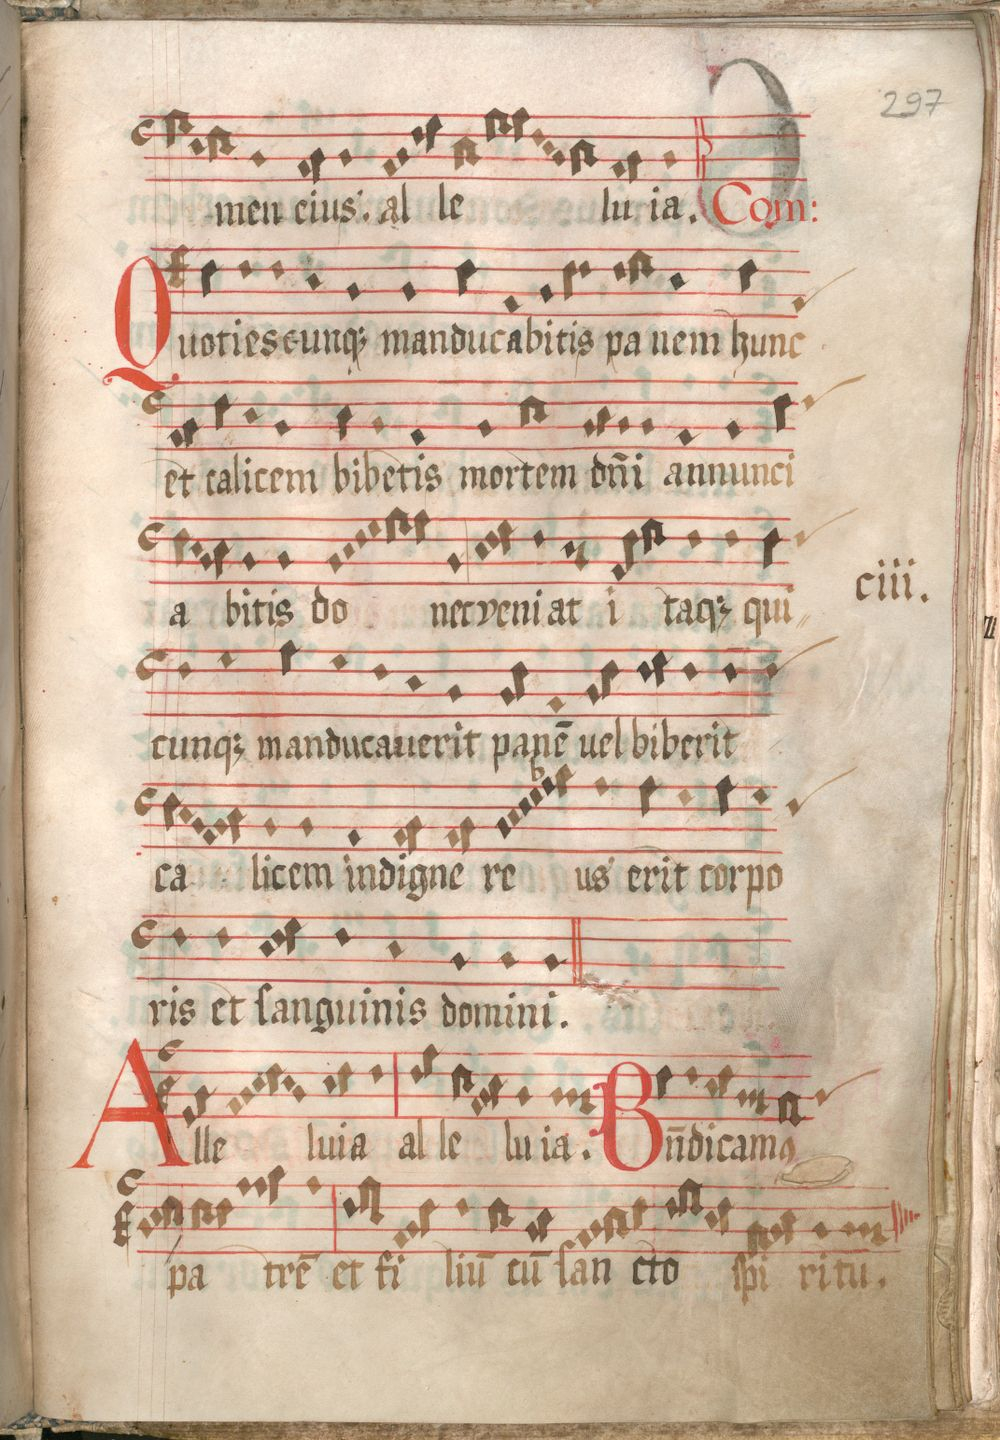 297
men eius. al le lu ia. Com:
Quotiescunqꝫ manducabitis pa nem hunc
et calicem bibetis mortem dn̄i annunci
a bitis do nec veni at i taqꝫ qui
ciii.
cunqꝫ manducauerit panē uel biberit
ca licem indigne re us erit corpo
ris et sanguinis domini.
Alle luia al le lu ia. Bn̄dicamꝰ
pa trē et fi liū cū san cto spi ritu.